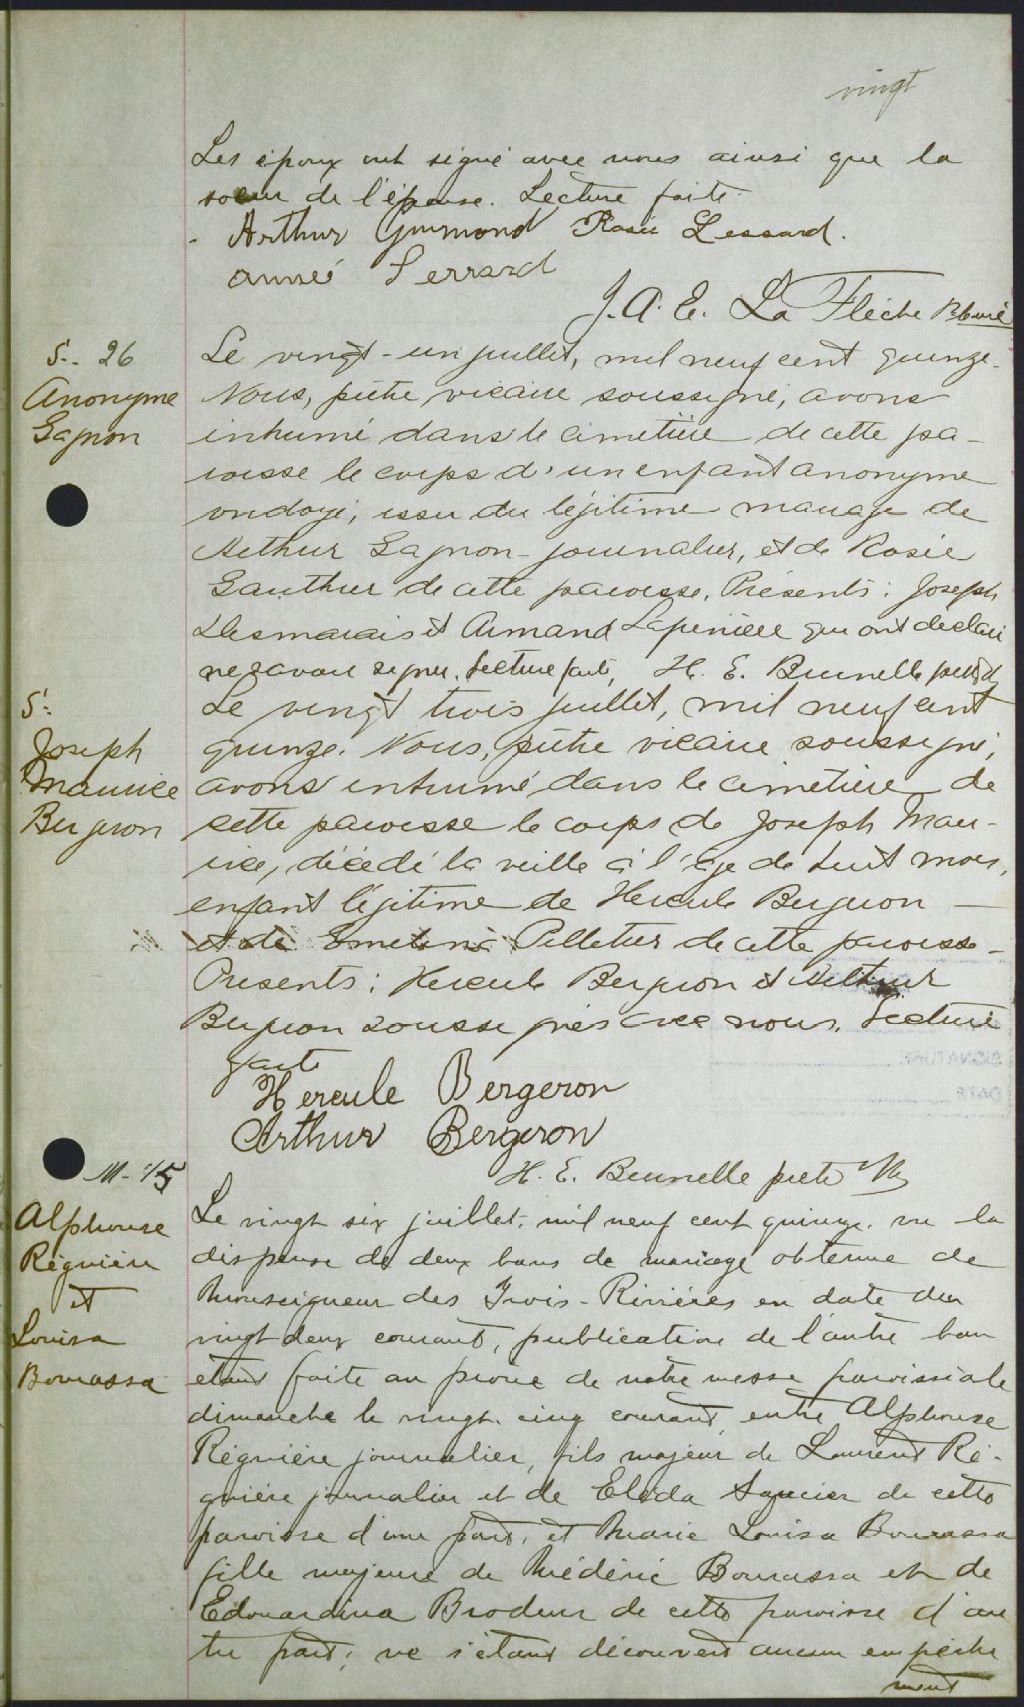 vingt
Les époux ont signé avec nous ainsi que la
soeur de l'épouse. Lecture faite
Arthur Guimond Rosie Lessard.
J. A. E. La Flèche Ptre curé
S. 26
Anonyme
Gagnon
Le vingt-un juillet, mil neuf cent quinze.
Nous, prêtre vicaire soussigné, avons
inhumé dans le cimetière de cette pa-
roisse le corps d'un enfant anonyme
ondoyé, issu du légitime mariage de
Arthur Gagnon journalier, et de Rosie
Gauthier de cette paroisse. Présents : Joseph
Desmarais et Armand Lapérrière qui ont déclaré
ne savoir signer. Lecture faite, H. E. Brunelle ptre
S.
Joseph
Maurice
Bergeron
Le vingt trois juillet, mil neuf cent
quinze. Nous, prêtre vicaire soussigné,
avons inhumé dans le cimetière de
cette paroisse le corps de Joseph Mau-
rice, décédé la veille à l'âge de huit mois,
enfant légitime de Hercule Bergeron
et de Pelletier de cette paroisse
Présents : Hercule Bergeron et Arthur
Bergeron soussignés avec nous. Lecture
faite
Hercule Bergeron
Arthur Bergeron
H. E. Brunelle prêtre
M. 15
Alphonse
Réguière
et
Louisa
Bourassa
Le vingt six juillet, mil neuf cent quinze. vu la
dispense de deux bans de mariage obtenue de
Monseigneur des Trois-Rivières en date du
vingt deux courant, publication de l'autre ban
étant faite au prône de notre messe paroissiale
dimanche le vingt. cinq courant entre Alphonse
Réguière journalier, fils majeur de Laurent Ré-
guière journalier et de Eleda Saucier de cette
paroisse d'une part, et Marie Louisa Bourassa
fille majeure de Médéric Bourassa et de
Edouardina Brodeur de cette paroisse d'au
tre part; ne s'étant découvert aucun empêche
ment